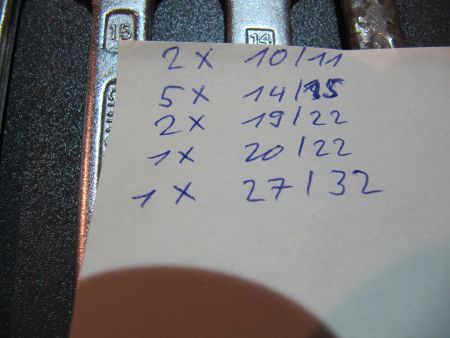 15
14
2 x 10/11
5 x 14/15
2 x 19/22
1 x 20/22
1 x 27/32